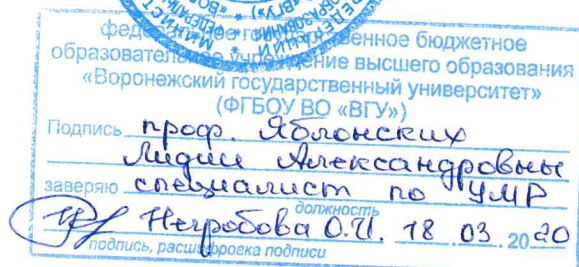 федеральное государственное бюджетное
образовательное учреждение высшего образования
«Воронежский государственный университет»
(ФГБОУ ВО «ВГУ»)
Подпись проф. Яблонских
Лидии Александровны
заверяю специалист по УМР
должность
Негробова О.И. 18 03. 2020
подпись, расшифровка подписи